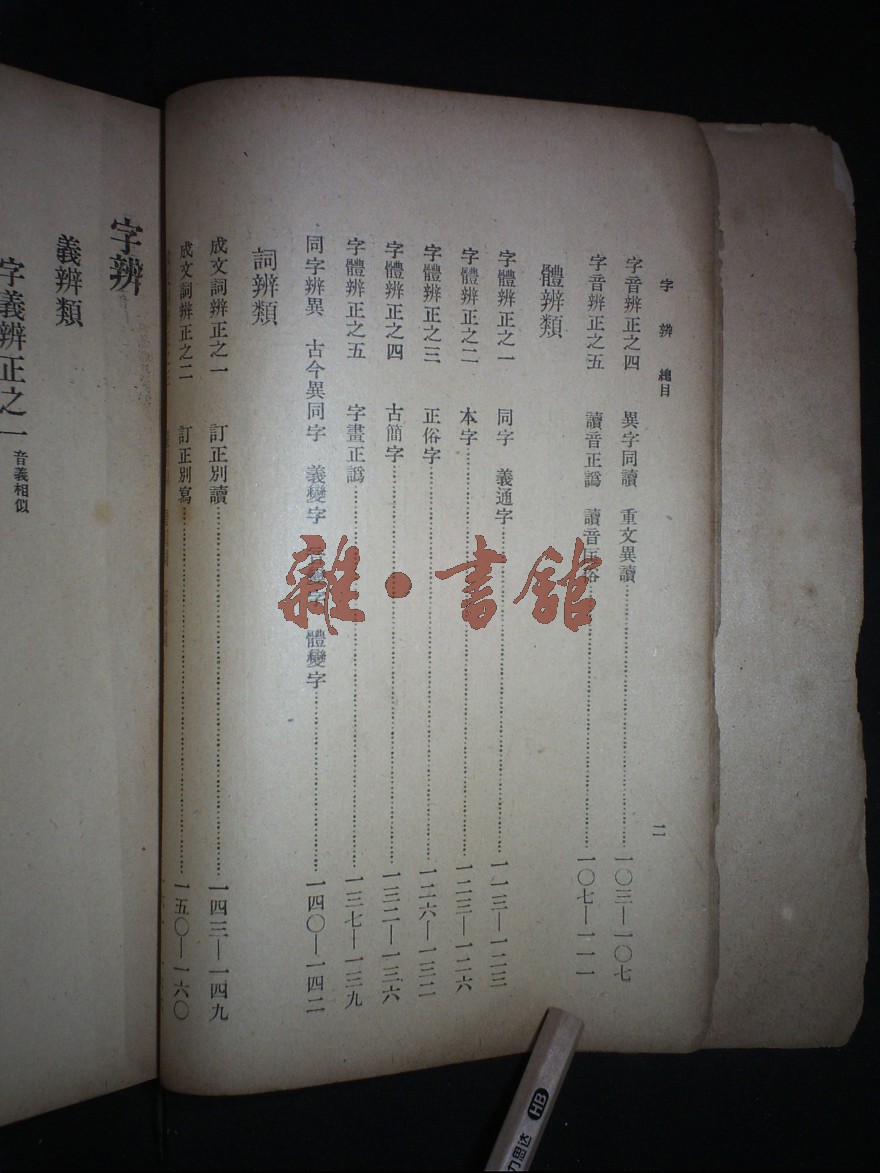 字辨 總目 二
字音辨正之四 異字同讀 重文異讀……一〇三—一〇七
字音辨正之五 讀音正譌 讀音正俗……一〇七—一一一
體辨類
字體辨正之一 同字 義通字……一一三—一二三
字體辨正之二 本字……一二三—一二六
字體辨正之三 正俗字……一二六—一三二
字體辨正之四 古簡字……一三二—一三六
字體辨正之五 字畫正譌……一三七—一三九
同字辨異 古今異同字 義變字 體變字……一四〇—一四二
詞辨類
成文詞辨正之一 訂正別讀……一四三—一四九
成文詞辨正之二 訂正別寫……一五〇—一六〇
字辨
義辨類
字義辨正之一 音義相似
雜·書館
力思达 HB